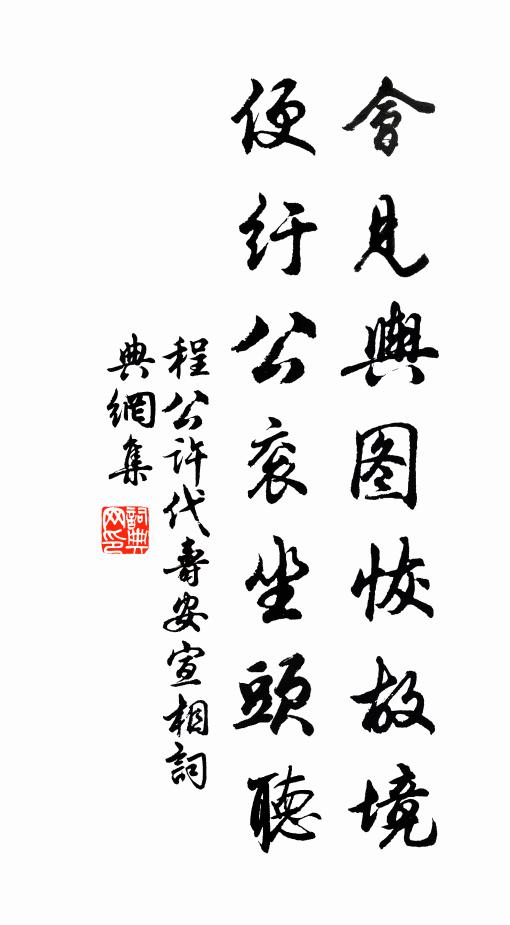 會見輿图恢故境
便纡公衮坐頭聽
程公許代壽安宣相詞
典網集
詞典網印